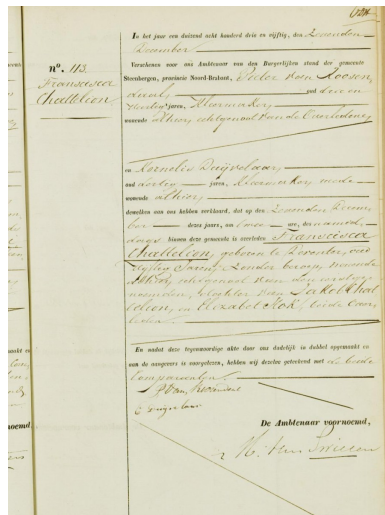 In het jaar een duizend acht honderd drie en vijftig, den Zevenden
December
Verscheen voor ons Ambtenaar van den Burgerlijken stand der gemeente
Steenbergen, provincie Noord-Braband, Pieter van Roosen
daal, oud
jaren, Kleermaker,
wonende alhier, echtgenoot van de Overledene
n°. 113.
Francisca
Chattelion
en Kornelis Duijvelaar,
oud dertig jaren, Kleermaker, mede
wonende alhier,
dewelken aan ons hebben verklaard, dat op den Zevenden Decem
ber dezes jaars, om twee ure, des namid
dags binnen deze gemeente is overleden Francisca
Chattelion, geboren te Deventer, oud
Jaren, Zonder beroep, wonende
alhier, echtgenoot van den
noemden, dochter van Jakob Chat
telion, en Elizabet Kok, beide over
leden.
En nadat deze tegenwoordige akte door ons dadelijk in dubbel opgemaakt en
aan de aangevers is voorgelezen, hebben wij dezelve geteekend met de beide
Comparanten.
P Van Rosendaal
C Duijvelaar
De Ambtenaar voornoemd,